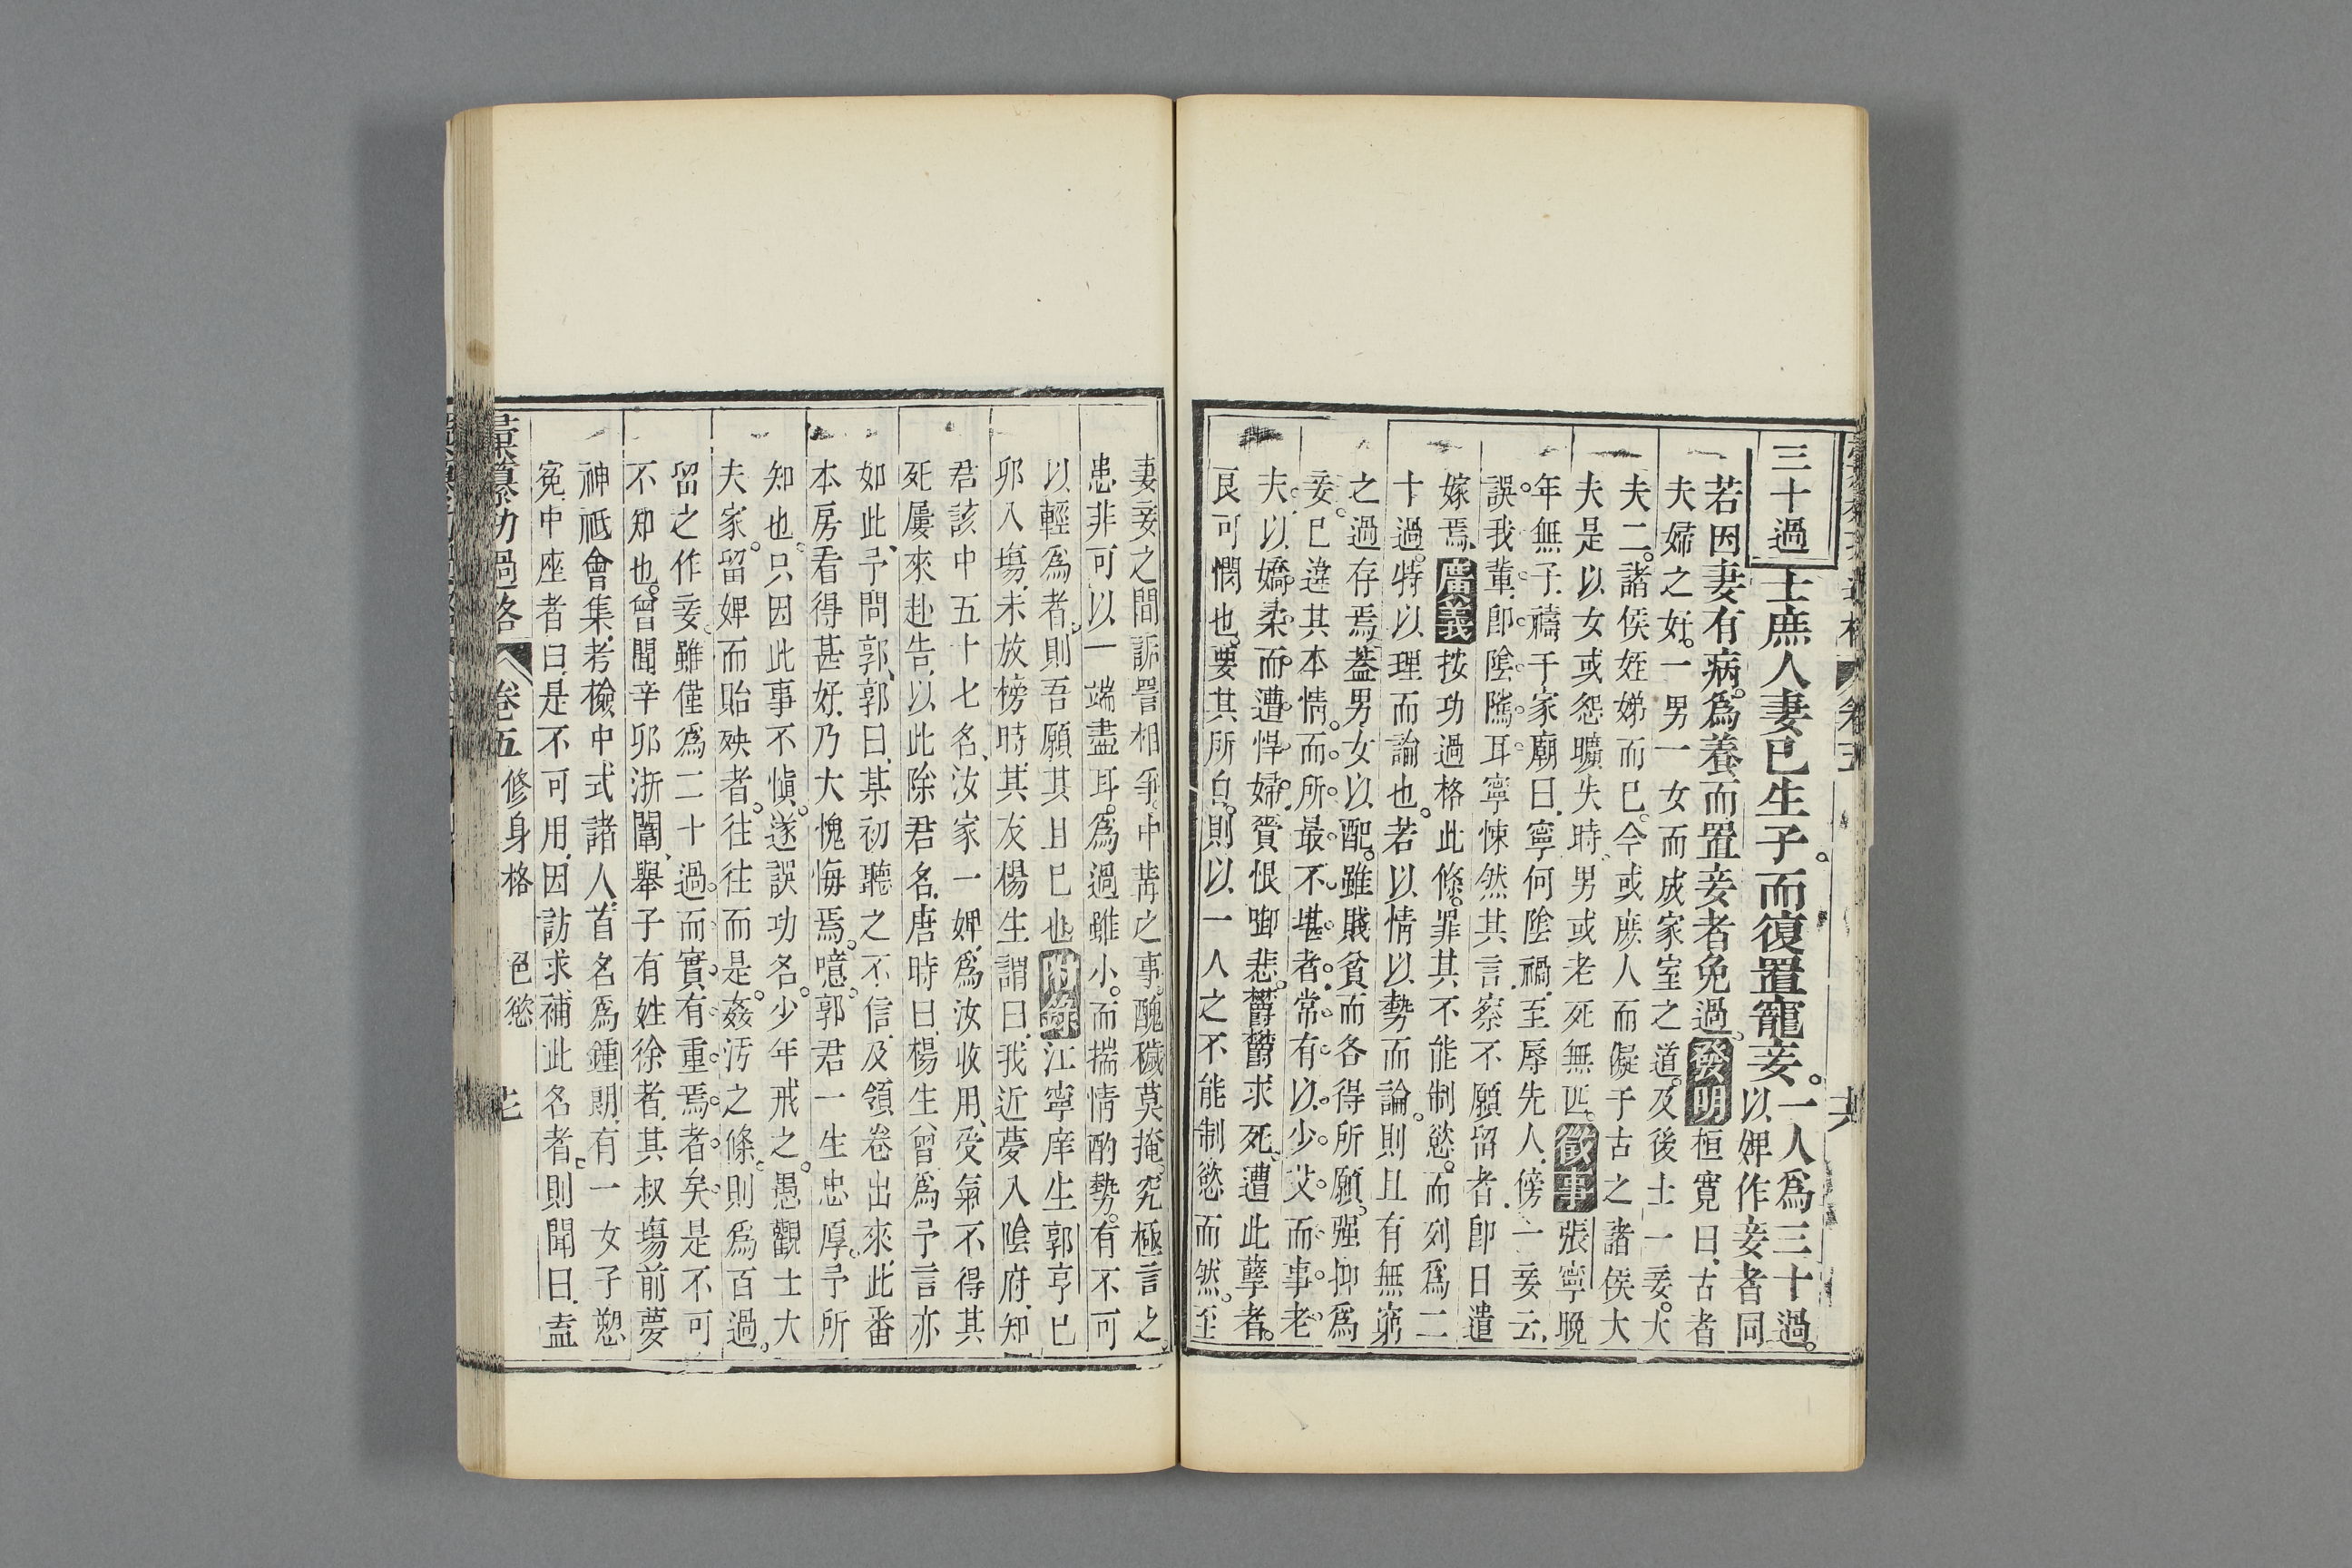 三十過 士庶人妻已生子。而復置寵妾。一人爲三十過。以婢作妾者同
若因妻有病。爲養而置妾者免過。發明桓寬曰。古者
夫婦之好。一男一女而成家室之道。及後士一妾。大
夫二。諸侯姪娣而已。今或庶人而儗于古之諸侯大
夫是以女或怨曠失時、男或老死無匹。徵事張寧晚
年無子。禱于家廟曰。寧何陰禍。至辱先人。傍一妾云。
誤我輩。卽陰隲耳寧悚然其言。察不願留者。卽日遣
嫁焉。廣義按功過格此條。罪其不能制慾。而列爲二
十過。特以理而論也。若以情以勢而論。則且有無窮
之過存焉。葢男女以配。雖賤貧而各得所願。强抑爲
妾。已違其本情。而所最不堪者。常有以少艾而事老
夫。以嬌柔而遭悍婦。賫恨啣悲。欝欝求死、遭此孽者。
良可憫也。要其所自。則以一人之不能制慾而然。至
妻妾之間訴詈相爭。中冓之事。醜穢莫掩。究極言之。
患非可以一端盡耳。爲過雖小。而揣情酌勢。有不可
以輕爲者。則吾願其且已也。附錄江寧庠生郭亨已
夘入塲。未放榜時。其友楊生謂曰。我近夢入陰府。知
君該中五十七名、汝家一婢。爲汝收用、受氣不得其
死屢來赴告。以此除君名。唐時曰。楊生曾爲予言亦
如此、予問郭、郭曰。某初聽之不信。及領卷出來。此番
本房看得甚好。乃大愧悔焉。噫。郭君一生忠厚。予所
知也。只因此事不愼。遂誤功名。少年戒之。愚觀士大
夫家。留婢而貽殃者。往往而是。姦汚之條。則爲百過。
畱之作妾。雖僅爲二十過。而實有重焉者矣。是不可
不知也。曾聞辛夘浙闈、舉子有姓徐者。其叔塲前夢
神祗會集。考檢中式諸人。首名爲鍾朗。有一女子愬
寃。中座者曰。是不可用。因訪求補此名者。則聞曰。盍
彚纂功過格 卷五 修身格 色慾